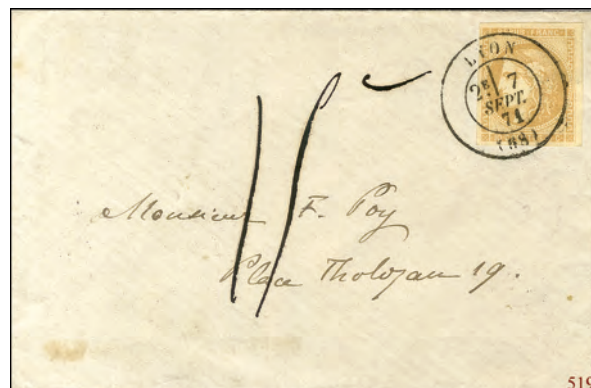 LYON
2E 7
SEPT.
71
(68)
15
Monsieur F. Poy
Place Tholozan 19.
519